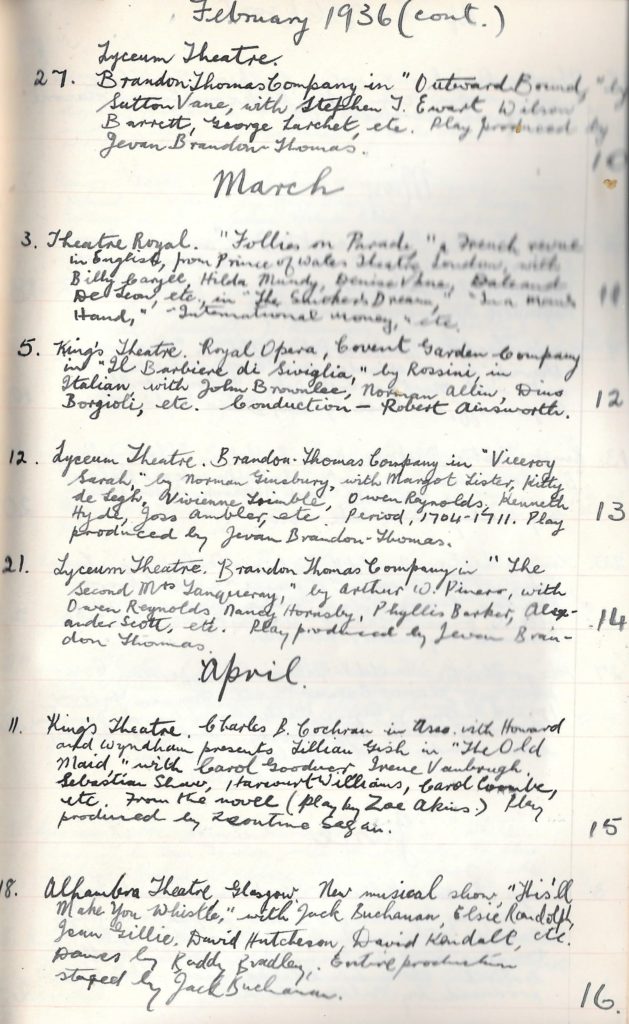 February 1936 (cont.)
Lyceum Theatre.
27. Brandon-Thomas Company in "Outward Bound," by
Sutton Vane, with Stephen T. Ewart, Wilson
Barrett, George Larchet, etc. Play produced by
Jevan Brandon-Thomas.
10
March
3. Theatre Royal. "Follies on Parade," a French revue
in English, from Prince of Wales Theatre, London, with
Billy Caryll, Hilda Mundy, Denise Vane, and
De Leon, etc., in "The Smoker's Dream," "In a
Hand," "International Money," etc.
11
5. King's Theatre. Royal Opera, Covent Garden Company
in "Il Barbiere di Siviglia," by Rossini, in
Italian, with John Brownlee, Norman Allin, Dino
Borgioli, etc. Conduction — Robert Ainsworth.
12
12. Lyceum Theatre. Brandon-Thomas Company in "Viceroy
Sarah," by Norman Ginsbury, with Margot Lister, Kitty
de Legh, Vivienne, Owen Reynolds. Kenneth
Hyde, Joss Ambler, etc. Period, 1704-1711. Play
produced by Jevan Brandon-Thomas.
13
21. Lyceum Theatre. Brandon Thomas Company in "The
Second Mrs Tanqueray," by Arthur W. Pinero, with
Owen Reynolds, Nancy Hornsby, Phyllis Barker, Alex-
ander Scott, etc. Play produced by Jevan Bran-
don Thomas.
14
April.
11. King's Theatre. Charles B. Cochran in Asso. with Howard
and Wyndham presents Lillian Gish in "The Old
Maid," with Carol Goodner, Irene Vanbrugh,
Sebastian Shaw, Harcourt Williams, Carol Coombe,
etc. From the novel (Play by Zoe Akins.) Play
produced by Leontine Sagan.
15
18. Alhambra Theatre, Glasgow. New musical show, "This'll
Make You Whistle," with Jack Buchanan, Elsie Randolph,
Jean Gillie, David Hutcheson, David Kendall, etc.
Dances by Buddy Bradley. Entire production
staged by Jack Buchanan.
16.